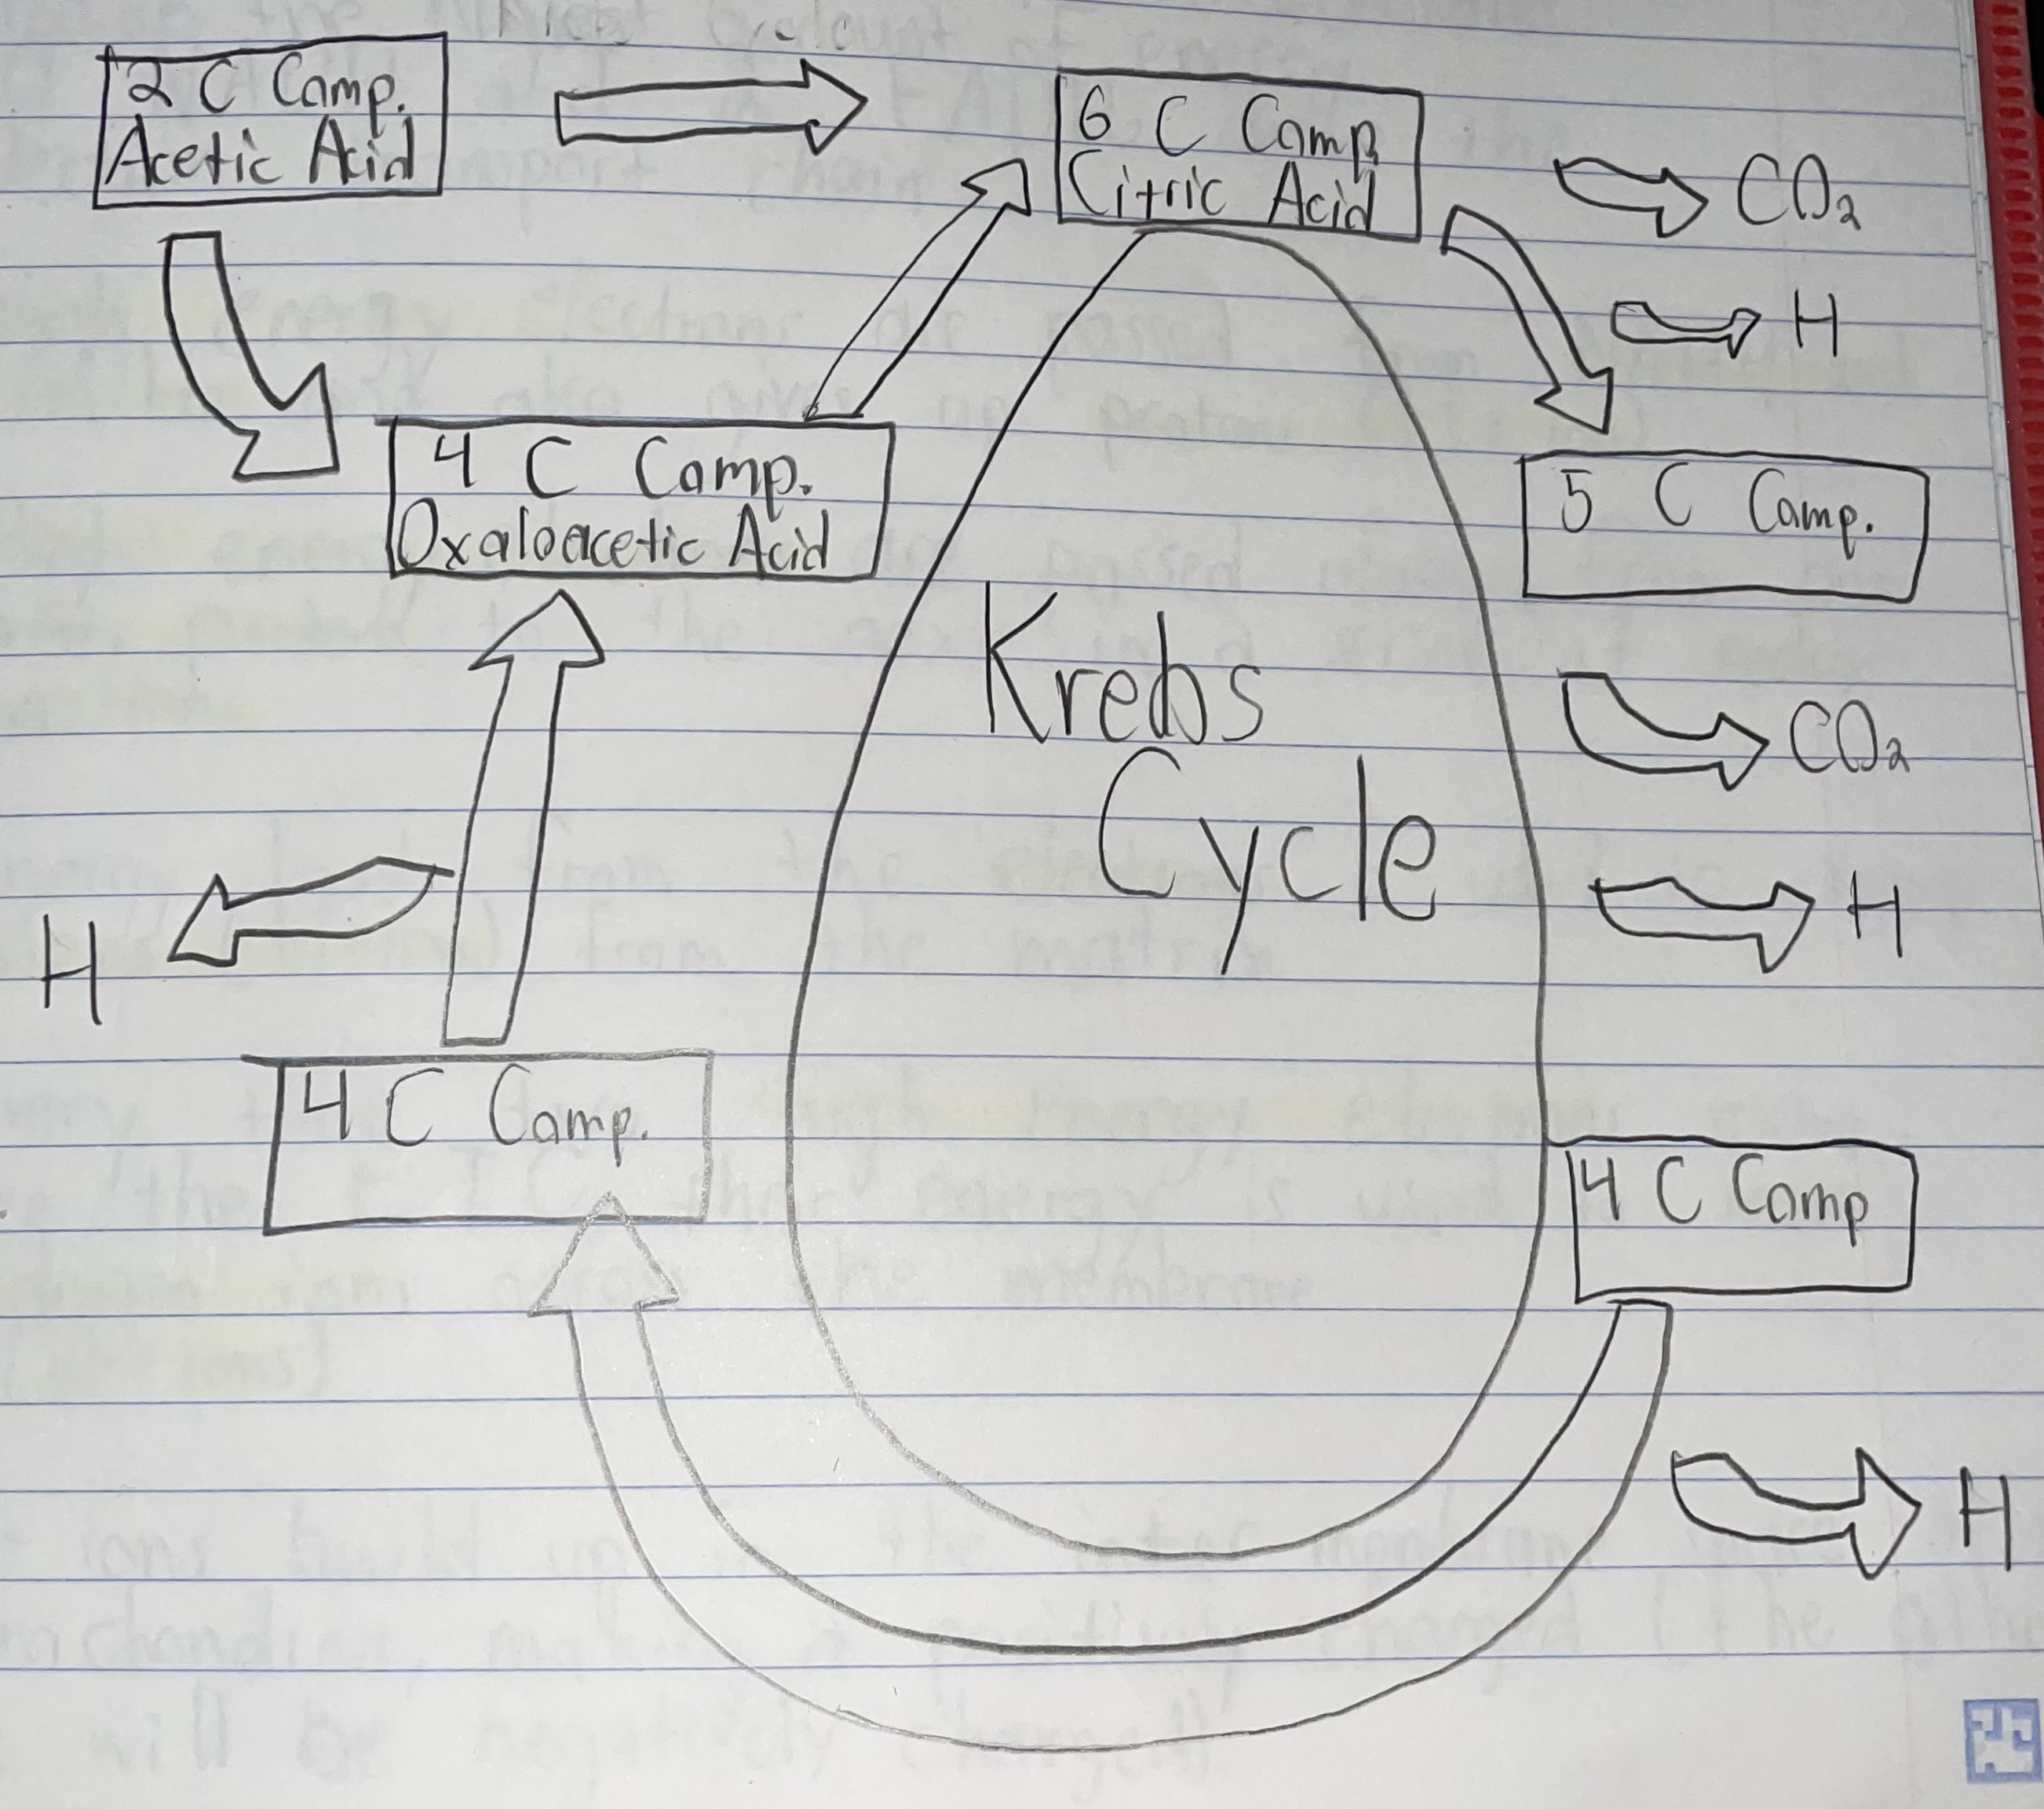 2 C Comp.
Acetic Acid
6 C Comp
Citric Acid
CO₂
H
4 C Comp.
Oxaloacetic Acid
5 C Comp.
Krebs
Cycle
CO₂
H
H
4 C Comp.
4 C Comp
H